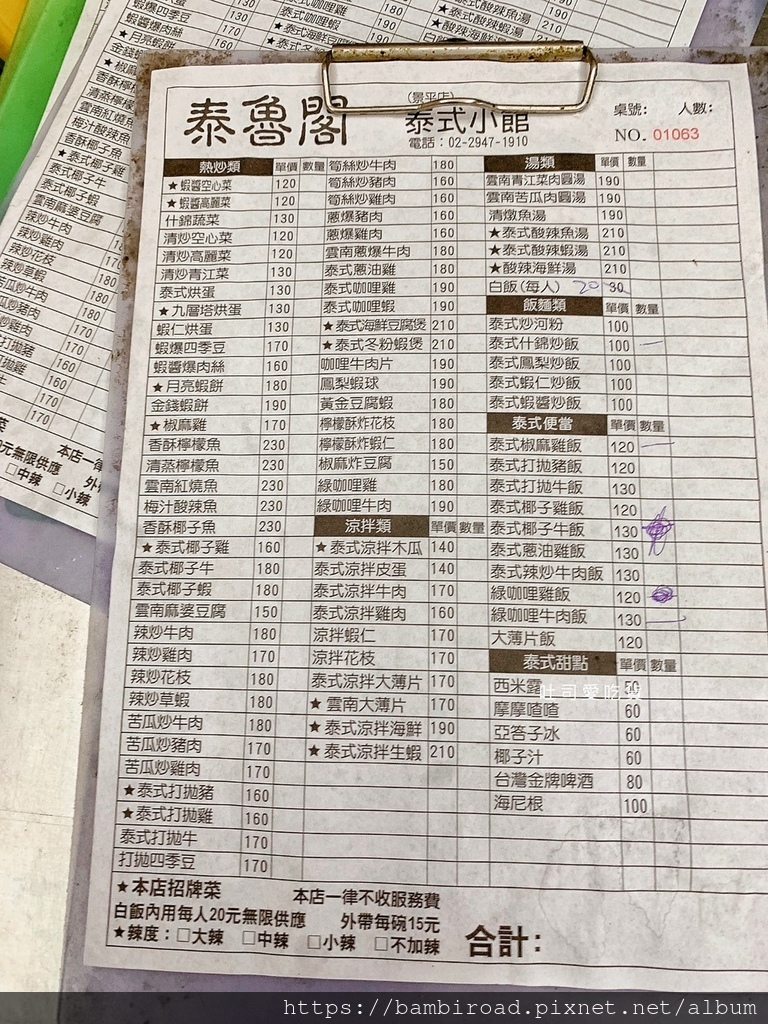 泰魯閣
(景平店)
泰式小館
電話：02-2947-1910
桌號： 人數：
NO. 01063
熱炒類 單價 數量
★蝦醬空心菜 120
★蝦醬高麗菜 120
什錦蔬菜 130
清炒空心菜 120
清炒高麗菜 120
清炒青江菜 130
泰式烘蛋 130
★九層塔烘蛋 130
蝦仁烘蛋 130
蝦爆四季豆 170
蝦醬爆肉絲 160
★月亮蝦餅 180
金錢蝦餅 190
★椒麻雞 170
香酥檸檬魚 230
清蒸檸檬魚 230
雲南紅燒魚 230
梅汁酸辣魚 230
香酥椰子魚 230
★泰式椰子雞 160
泰式椰子牛 180
泰式椰子蝦 180
雲南麻婆豆腐 150
辣炒牛肉 180
辣炒雞肉 170
辣炒花枝 180
辣炒草蝦 180
苦瓜炒牛肉 180
苦瓜炒豬肉 170
苦瓜炒雞肉 170
★泰式打拋豬 160
★泰式打拋雞 160
泰式打拋牛 170
打拋四季豆 170
筍絲炒牛肉 180
筍絲炒豬肉 160
筍絲炒雞肉 160
蔥爆豬肉 160
蔥爆雞肉 160
雲南蔥爆牛肉 180
泰式蔥油雞 180
泰式咖哩雞 190
泰式咖哩蝦 190
★泰式海鮮豆腐煲 210
★泰式冬粉蝦煲 210
咖哩牛肉片 190
鳳梨蝦球 190
黃金豆腐蝦 180
檸檬酥炸花枝 180
檸檬酥炸蝦仁 180
椒麻炸豆腐 150
綠咖哩雞 180
綠咖哩牛肉 190
涼拌類 單價 數量
★泰式涼拌木瓜 140
泰式涼拌皮蛋 140
泰式涼拌牛肉 170
泰式涼拌雞肉 160
涼拌蝦仁 170
涼拌花枝 170
泰式涼拌大薄片 170
★雲南大薄片 170
★泰式涼拌海鮮 190
★泰式涼拌生蝦 210
湯類 單價 數量
雲南青江菜肉圓湯 190
雲南苦瓜肉圓湯 190
清燉魚湯 190
★泰式酸辣魚湯 210
★泰式酸辣蝦湯 210
★酸辣海鮮湯 210
白飯(每人) 20 30
飯麵類 單價 數量
泰式炒河粉 100
泰式什錦炒飯 100
泰式鳳梨炒飯 100
泰式蝦仁炒飯 100
泰式蝦醬炒飯 100
泰式便當 單價 數量
泰式椒麻雞飯 120
泰式打拋豬飯 120
泰式打拋牛飯 130
泰式椰子雞飯 120
泰式椰子牛飯 130
泰式蔥油雞飯 130
泰式辣炒牛肉飯 130
綠咖哩雞飯 120
綠咖哩牛肉飯 130
大薄片飯 120
泰式甜點 單價 數量
西米露 50
摩摩喳喳 60
亞答子冰 60
椰子汁 60
台灣金牌啤酒 80
海尼根 100
★本店招牌菜 本店一律不收服務費
白飯內用每人20元無限供應 外帶每碗15元
★辣度：□大辣 □中辣 □小辣 □不加辣
合計：
吐司愛吃
https://bambiroad.pixnet.net/album